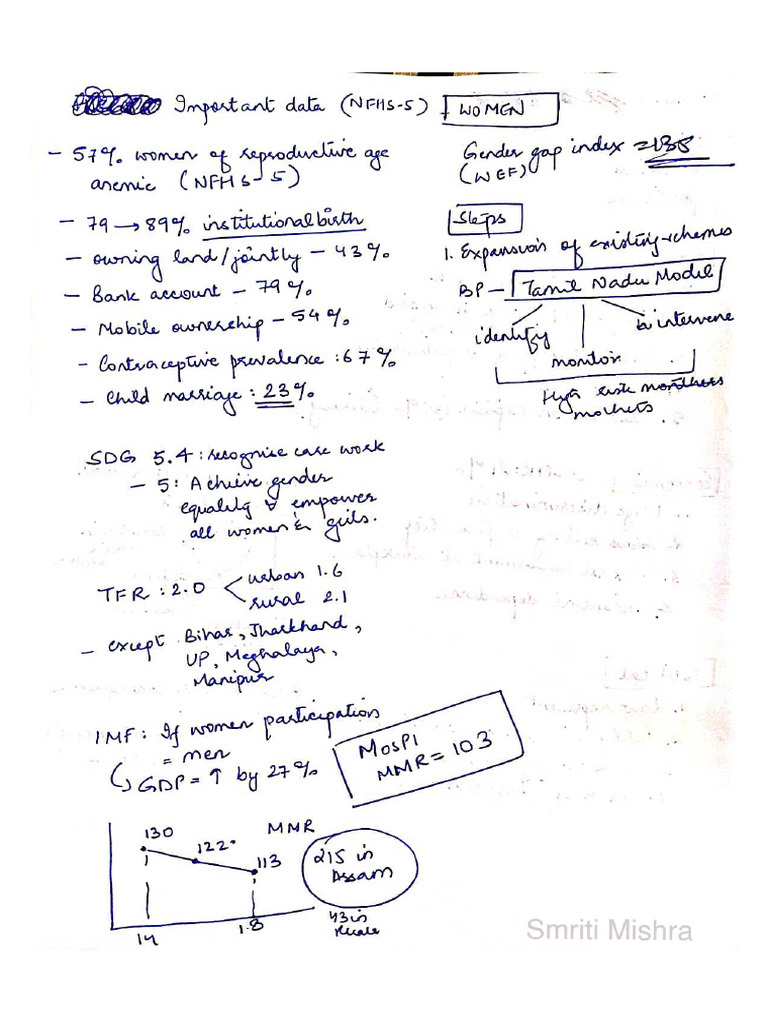 Important data (NFHS-5) - WOMEN
- 57% women of reproductive age
anemic (NFHS-5)
- 79 → 89% institutional birth
- owning land/jointly - 43%
- Bank account - 79%
- Mobile ownership - 54%
- Contraceptive prevalence : 67%
- Child marriage : 23%
Gender gap index = 135
(WEF)
Steps
1. Expansion of existing schemes
BP - Tamil Nadu Model
identify
monitor
to intervene
High risk
mothers
SDG 5.4 : recognise care work
- 5 : Achieve gender
equality & empower
all women & girls.
TFR : 2.0
urban 1.6
rural 2.1
- except Bihar, Jharkhand,
UP, Meghalaya,
Manipur
IMF : If women participation
= men
GDP = ↑ by 27%
MOSPI
MMR = 103
MMR
130
122
113
14
18
215 in
Assam
43 in
Kerala
Smriti Mishra